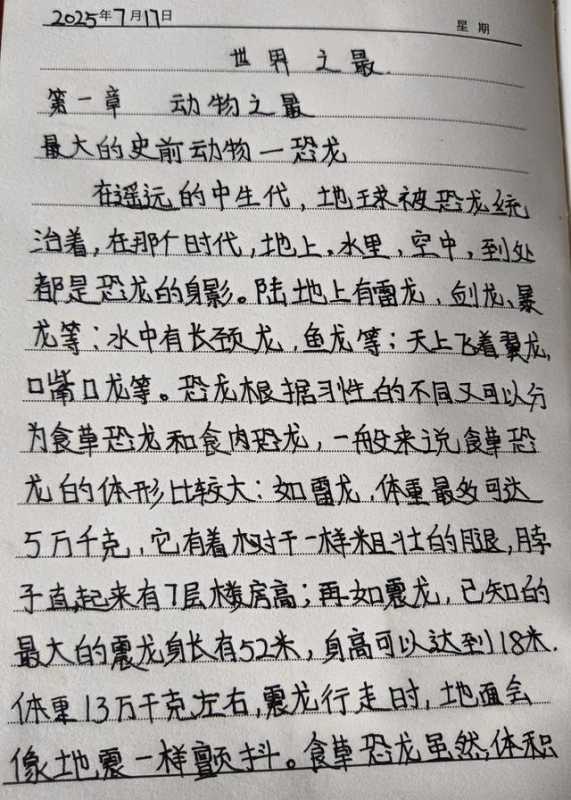 2025年7月17日
星期
世界之最
第一章 动物之最
最大的史前动物—恐龙
在遥远的中生代，地球被恐龙统
治着，在那个时代，地上，水里，空中，到处
都是恐龙的身影。陆地上有雷龙、剑龙、暴
龙等；水中有长颈龙，鱼龙等；天上飞着翼龙，
口嘴口龙等。恐龙根据习性的不同又可以分
为食草恐龙和食肉恐龙，一般来说食草恐
龙的体形比较大：如雷龙，体重最多可达
5万千克，它有着树干一样粗壮的腿，脖
子直起来有7层楼房高；再如震龙，已知的
最大的震龙身长有52米，身高可以达到18米.
体重13万千克左右，震龙行走时，地面会
像地震一样颤抖。食草恐龙虽然，体积